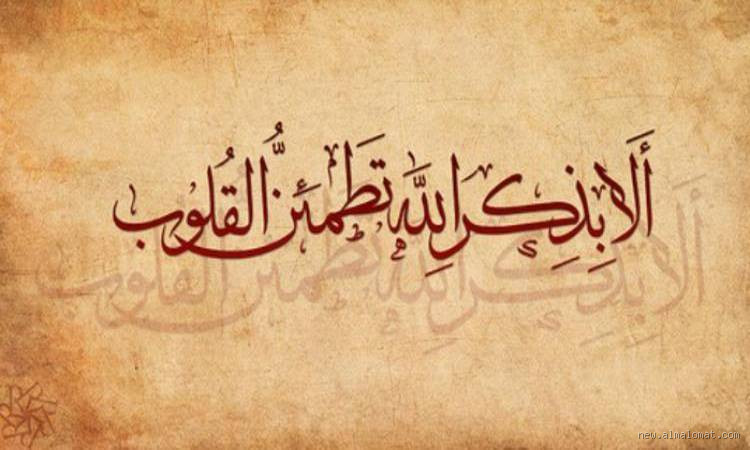 أَلَا بِذِكْرِ اللَّهِ تَطْمَئِنُّ الْقُلُوبُ
أَلَا بِذِكْرِ اللَّهِ تَطْمَئِنُّ الْقُلُوبُ
new.almalomat.com